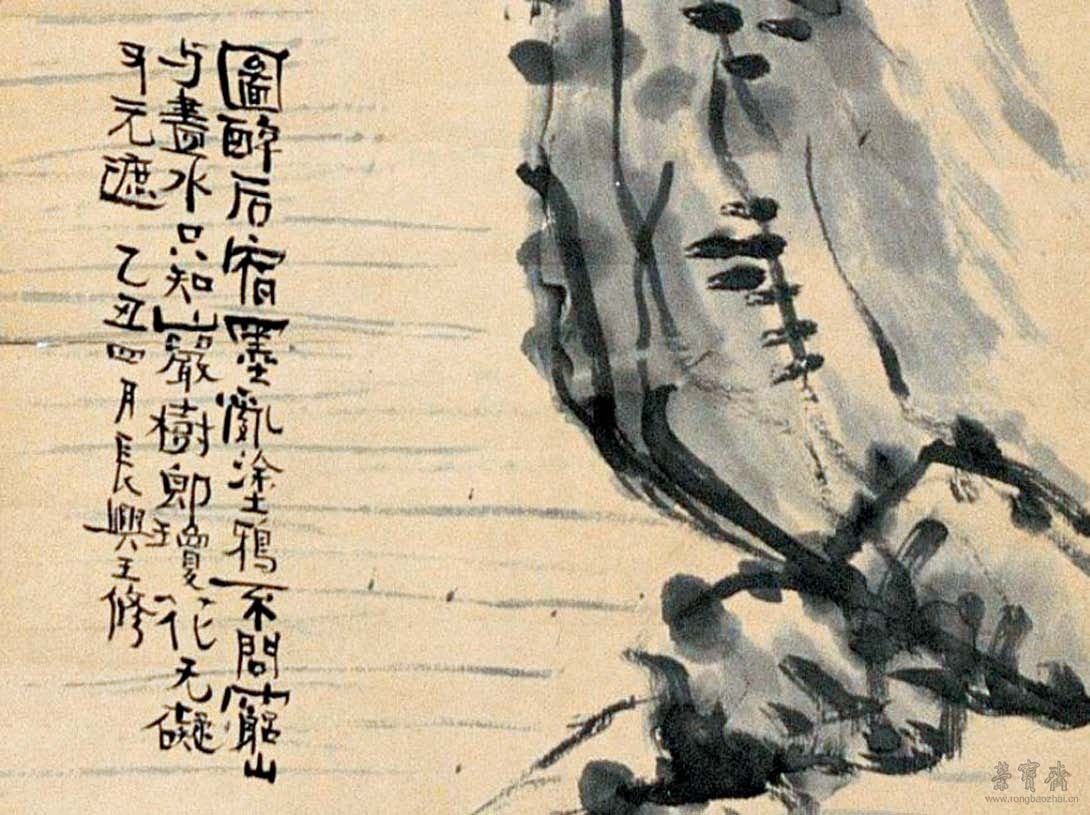 圖醉后宿墨亂塗鴉不問窮山
与畫水只知山嚴樹即瓊花无礙
又元遮 乙丑四月長興王修
榮寶齋
www.rongbaozhai.cn